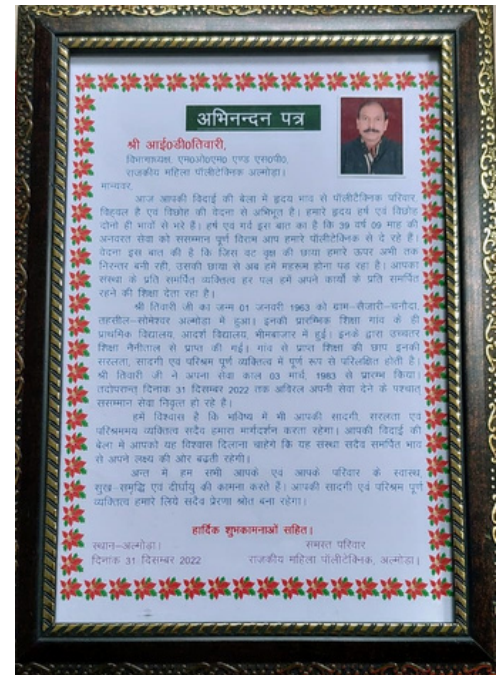 अभिनन्दन पत्र
श्री आई0डी0तिवारी,
विभागाध्यक्ष, एम0ओ0एम0 एण्ड एस0पी0,
राजकीय महिला पॉलीटेक्निक अल्मोड़ा।
मान्यवर,
आज आपकी विदाई की बेला में हृदय भाव से पॉलीटेक्निक परिवार
विहवल है एवं विछोह की वेदना से अभिभूत है। हमारे हृदय हर्ष एवं विछोह
दोनो ही भावों से भरे हैं। हर्ष एवं गर्व इस बात का है कि 39 वर्ष 09 माह की
अनवरत सेवा को ससम्मान पूर्ण विराम आप हमारे पॉलीटेक्निक से दे रहे हैं।
वेदना इस बात की है कि जिस वट वृक्ष की छाया हमारे ऊपर अभी तक
निरन्तर बनी रही, उसकी छाया से अब हमे महरूम होना पड रहा है। आपका
संस्था के प्रति समर्पित व्यक्तित्व हर पल हमें अपने कार्यों के प्रति समर्पित
रहने की शिक्षा देता रहा है।
श्री तिवारी जी का जन्म 01 जनवरी 1963 को ग्राम-सैजारी-चनौदा,
तहसील-सोमेश्वर अल्मोड़ा में हुआ। इनकी प्रारम्भिक शिक्षा गांव के ही
प्राथमिक विद्यालय, आदर्श विद्यालय, भीमबाजार में हुई। इनके द्वारा उच्चतर
शिक्षा नैनीताल से प्राप्त की गई। गांव से प्राप्त शिक्षा की छाप इनकी
सरलता, सादगी एवं परिश्रम पूर्ण व्यक्तित्व में पूर्ण रूप से परिलक्षित होती है।
श्री तिवारी जी ने अपना सेवा काल 03 मार्च, 1983 से प्रारम्भ किया।
तदोपरान्त दिनांक 31 दिसम्बर 2022 तक अविरल अपनी सेवा देने के पश्चात्
ससम्मान सेवा निवृत्त हो रहे हैं।
हमें विश्वास है कि भविष्य में भी आपकी सादगी, सरलता एवं
परिश्रममय व्यक्तित्व सदैव हमारा मार्गदर्शन करता रहेगा। आपकी विदाई की
बेला में आपको यह विश्वास दिलाना चाहेंगे कि यह संस्था सदैव समर्पित भाव
से अपने लक्ष्य की ओर बढ़ती रहेगी।
अन्त में हम सभी आपके एवं आपके परिवार के स्वास्थ,
सुख-समृद्धि एवं दीर्घायु की कामना करते हैं। आपकी सादगी एवं परिश्रम पूर्ण
व्यक्तित्व हमारे लिये सदैव प्रेरणा श्रोत बना रहेगा।
हार्दिक शुभकामनाओं सहित।
स्थान-अल्मोड़ा। समस्त परिवार
दिनांक 31 दिसम्बर 2022 राजकीय महिला पॉलीटेक्निक, अल्मोड़ा।